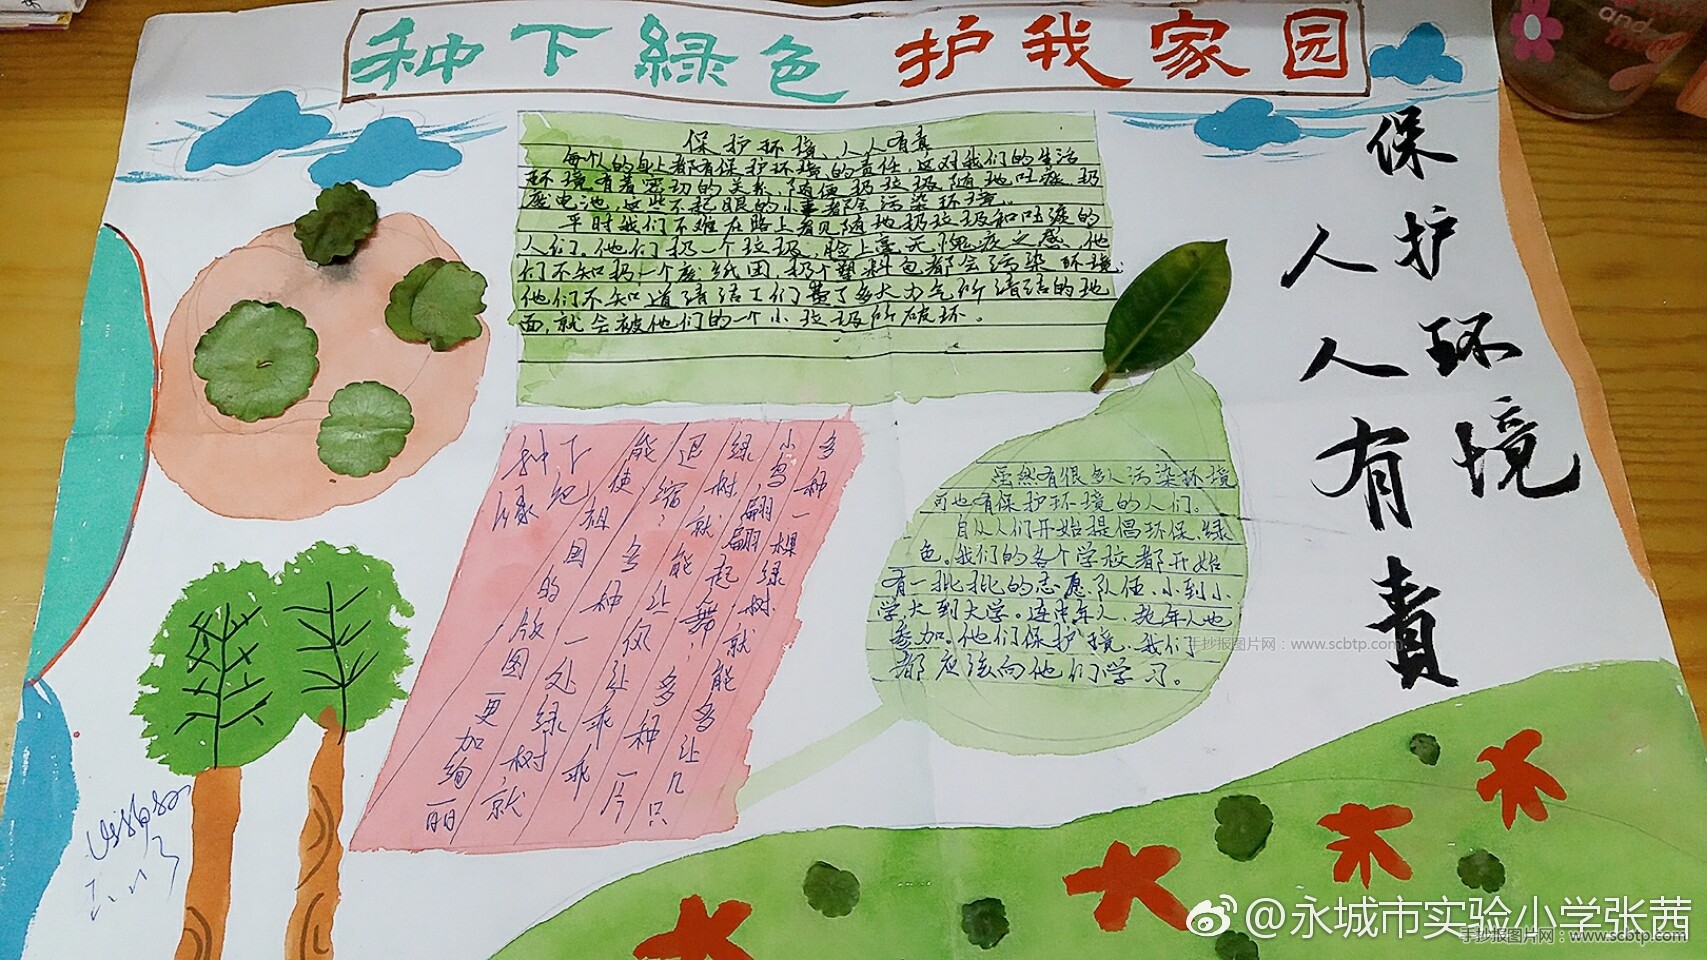 种下緑色 护我家园
保护环境
人人有責
保护环境,人人有责
每个人的身上都有保护环境的责任,这对我们的生活
环境有着密切的关系,随便扔垃圾,随地吐痰,扔
废电池,这些不起眼的小事都会污染环境。
平时我们不难在路上看见随地扔垃圾和吐痰的
人们。他们扔一个垃圾,脸上毫无愧疚之感,他
们不知扔一个废纸团,扔个塑料包都会污染环境.
他们不知道清洁工们费了多大力气所清洁的地
面,就会被他们的一个小垃圾所破坏。
多种一棵绿树就能多让几只
小鸟翩翩起舞,多种一片
绿树,就能让风让乖乖
退缩,多种一处绿树,就
能使祖国的版图更加绚丽
种下绿色
虽然有很多人污染环境
可也有保护环境的人们。
自从人们开始提倡环保、绿
色。我们的各个学校都开始
有一批批的志愿队伍,小到小
学大到大学。连中年人、老年人也
参加。他们保护环境,我们
都应该向他们学习。
手抄报图片网:www.scbtp.com
@永城市实验小学张茜
手抄报图片网:www.scbtp.com
and